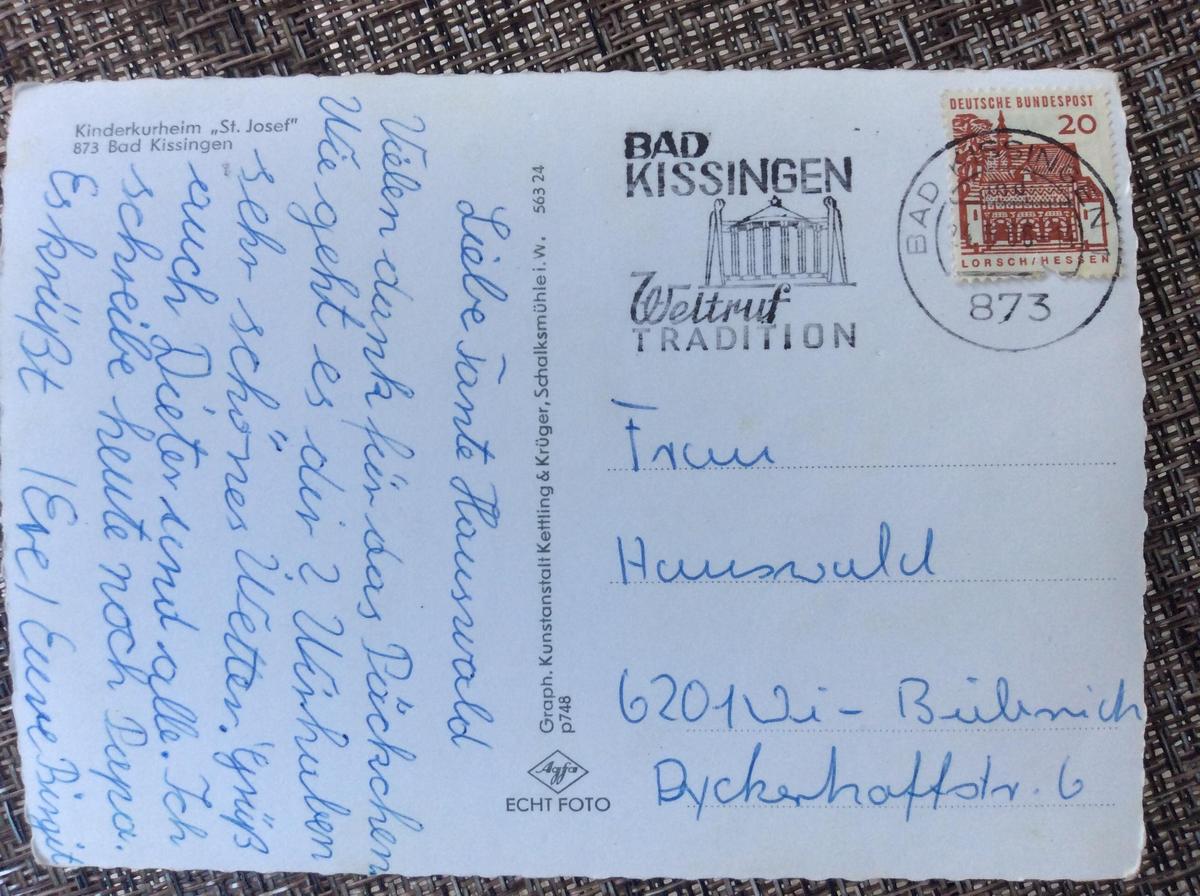 Kinderkurheim „St. Josef"
873 Bad Kissingen
Liebe Tante Hauswald
Vielen dank für das Päckchen
Wie geht es dir? Wir haben
sehr schönes Wetter. Grüß
auch Dieter und alle. Ich
schreibe heute noch Papa.
Es krüßt Eure Birgit
Graph. Kunstanstalt Kettling & Krüger, Schalksmühle i. W. 563 24
p748
Agfa
ECHT FOTO
BAD
KISSINGEN
Weltruf
TRADITION
BAD KISSINGEN
873
DEUTSCHE BUNDESPOST
20
LORSCH/HESSEN
Frau
Hauswald
6201 Wi-
Dyckerhoffstr. 6